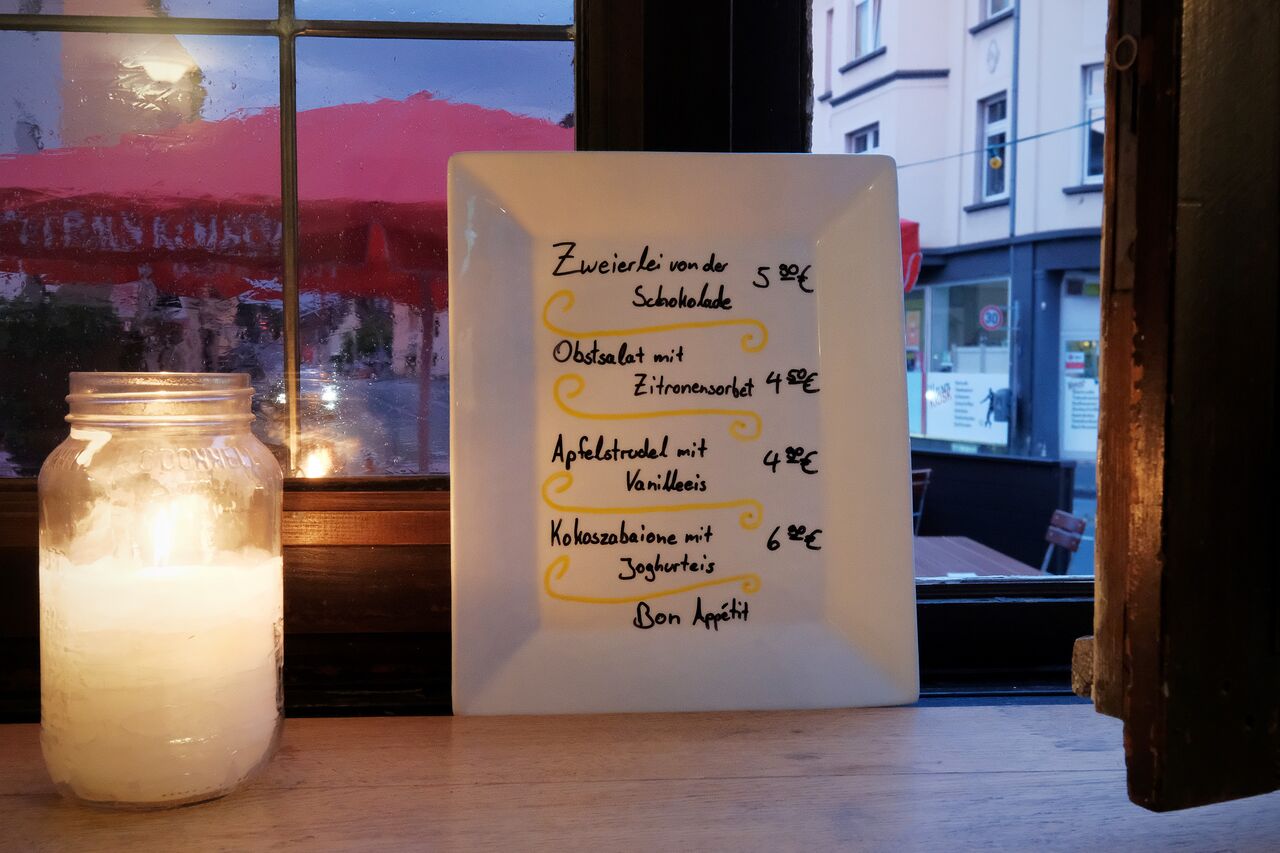 Zweierlei von der
Schokolade 5 90€
Obstsalat mit
Zitronensorbet 4 50€
Apfelstrudel mit
Vanilleeis 4 90€
Kokoszabaione mit
Joghurteis 6 90€
Bon Appétit
30